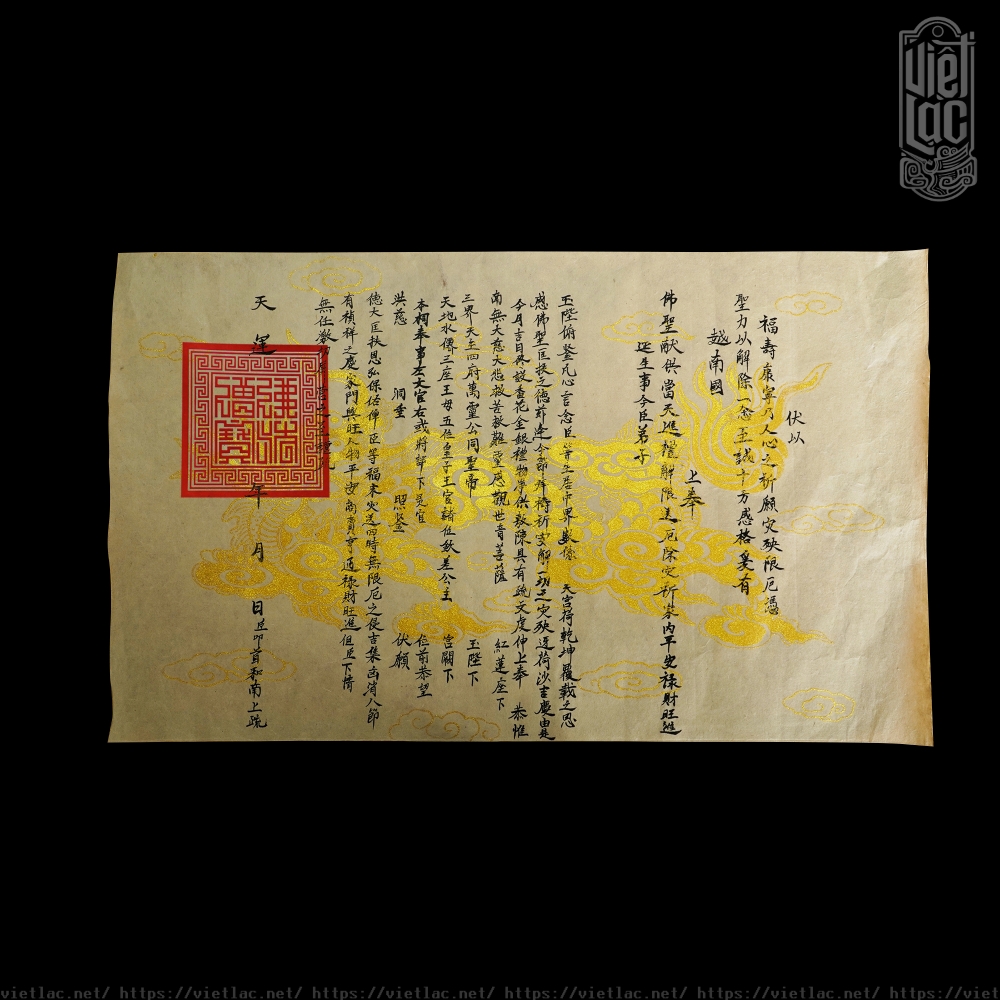 伏以
福壽康寧乃人心之祈願灾殃限厄憑
聖力以解除一念至誠十方感格爰有
越南國
上奉
佛聖献供當天進禮解限送厄除灾祈求內平安祿財旺進
延生事今臣弟子
玉陛俯鑒凡心言念臣等生居中界數係 天宮荷乾坤覆載之恩
感佛聖匡扶之德茲逢令節拜禱祈安解一切之灾殃迓荷沙吉慶由是
今月吉日終設香花金銀禮物等供敷陳具有疏文虔伸上奉 恭惟
南無大慈大悲救苦救難靈感觀世音菩薩 紅蓮座下
三界天主四府萬靈公同聖帝 玉陛下
天地水僊三座王母五位皇子王官諸位欽差公主 宮闕下
本祠奉事左大官右或將部下灵官 位前恭望
洪慈 洞垂 照鉴 伏願
德大匡扶恩弘保佑俾臣等福來灾送四時無限厄之侵吉集凶消八節
有禎祥之慶家門興旺人物平安商賣亨通祿財旺進但臣下情
無任
天運 年 月 日臣叩首和南上疏
Việt
Lạc
vietlac.net/ https://vietlac.net/ https://vietlac.net/ https://vietlac.net/ https://vietlac.net/ https:/